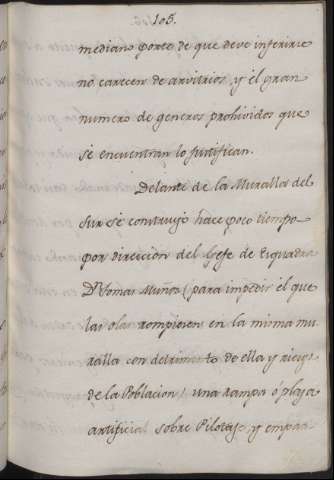 105.
mediano porte de que deve inferirse
no carecen de arvitrios, y el gran
numero de generos prohividos que
se encuentran lo justifican.
Delante de la Muralla del
Sur se construyó hace poco tiempo
por dirección del Gefe de Esquadra
Dn Tomas Muñoz (para impedir el que
las olas rompiesen en la misma mu
ralla con detrimento de ella y riesgo
de la Poblacion) una rampa ó playa
artificial sobre Pilotage, y empa